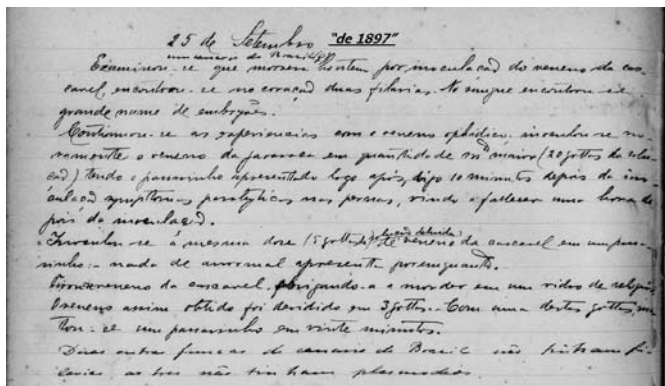 25 de Setembro "de 1897"
um canario do Brazil
Examinou-se que morrera hontem por inoculação do veneno da cas-
cavel, encontrou-se no coração duas filarias. No sangue encontrou-se
grande nume de embryões.
Continuou-se as experiencias com o veneno ophidico, inoculou-se no-
vamente o veneno da jararaca em quantidade maior (20 gottas da solu-
ção) tendo o passarinho apresentado logo após, digo 10 minutos depois da ino-
culação symptomas paralyticos nas pernas, vindo a fallecer uma hora de-
pois da inoculação.
Inoculou-se a mesma dose (5 gottas da solução de veneno da cascavel em um passa-
rinho: nada de anormal apresenta por emquanto.
veneno da cascavel obrigando-a a morder em um vidro de relogio
O veneno assim obtido foi dividido em 3 gottas. Com uma destas gottas, ma-
tou-se um passarinho em vinte minutos.
Duas outras femeas de canario do Brazil não tinham fi-
larias as tres não tinham plasmodios